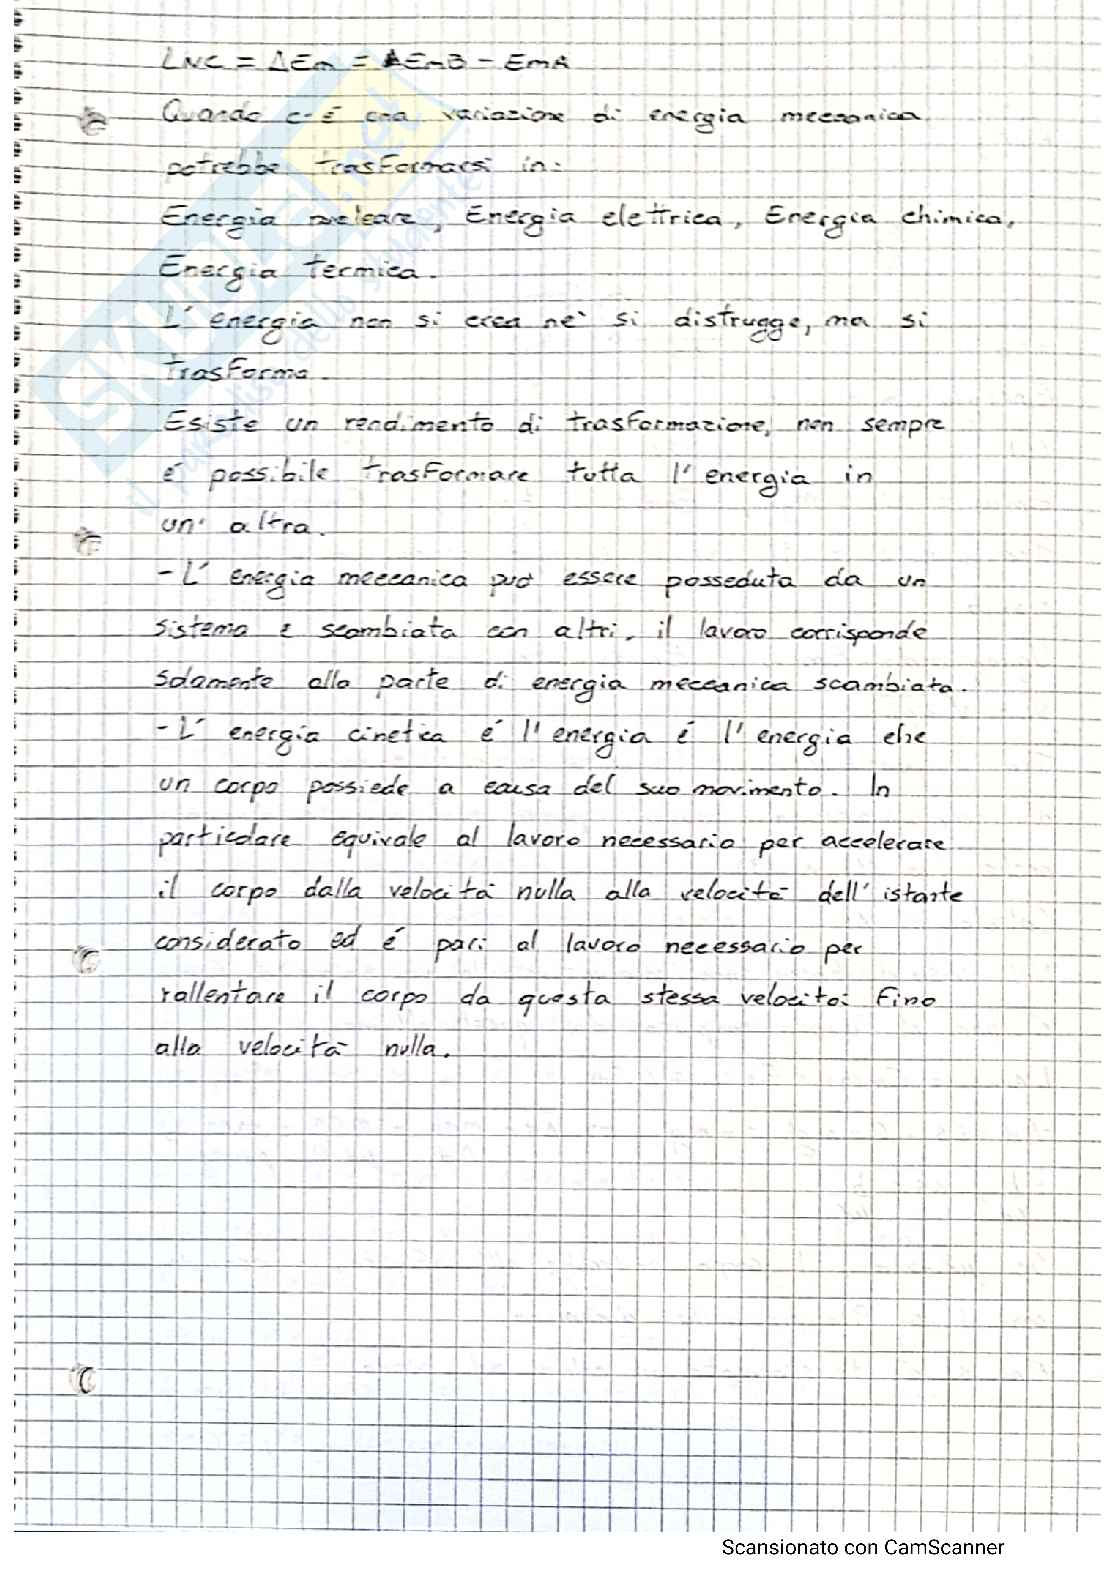 LNC = ΔEm = EmB - EmA
Quando c'é una variazione di energia meccanica
potrebbe trasformarsi in:
Energia nucleare, Energia elettrica, Energia chimica,
Energia termica.
L'energia non si crea né si distrugge, ma si
trasforma.
Esiste un rendimento di trasformazione, non sempre
é possibile trasformare tutta l'energia in
un'altra.
- L'energia meccanica può essere posseduta da un
sistema e scambiata con altri, il lavoro corrisponde
solamente alla parte di energia meccanica scambiata.
- L'energia cinetica é l'energia é l'energia che
un corpo possiede a causa del suo movimento. In
particolare equivale al lavoro necessario per accelerare
il corpo dalla velocità nulla alla velocità dell'istante
considerato ed é pari al lavoro necessario per
rallentare il corpo da questa stessa velocità fino
alla velocità nulla.
SKUOLA.net
il paradiso dello studente
Scansionato con CamScanner